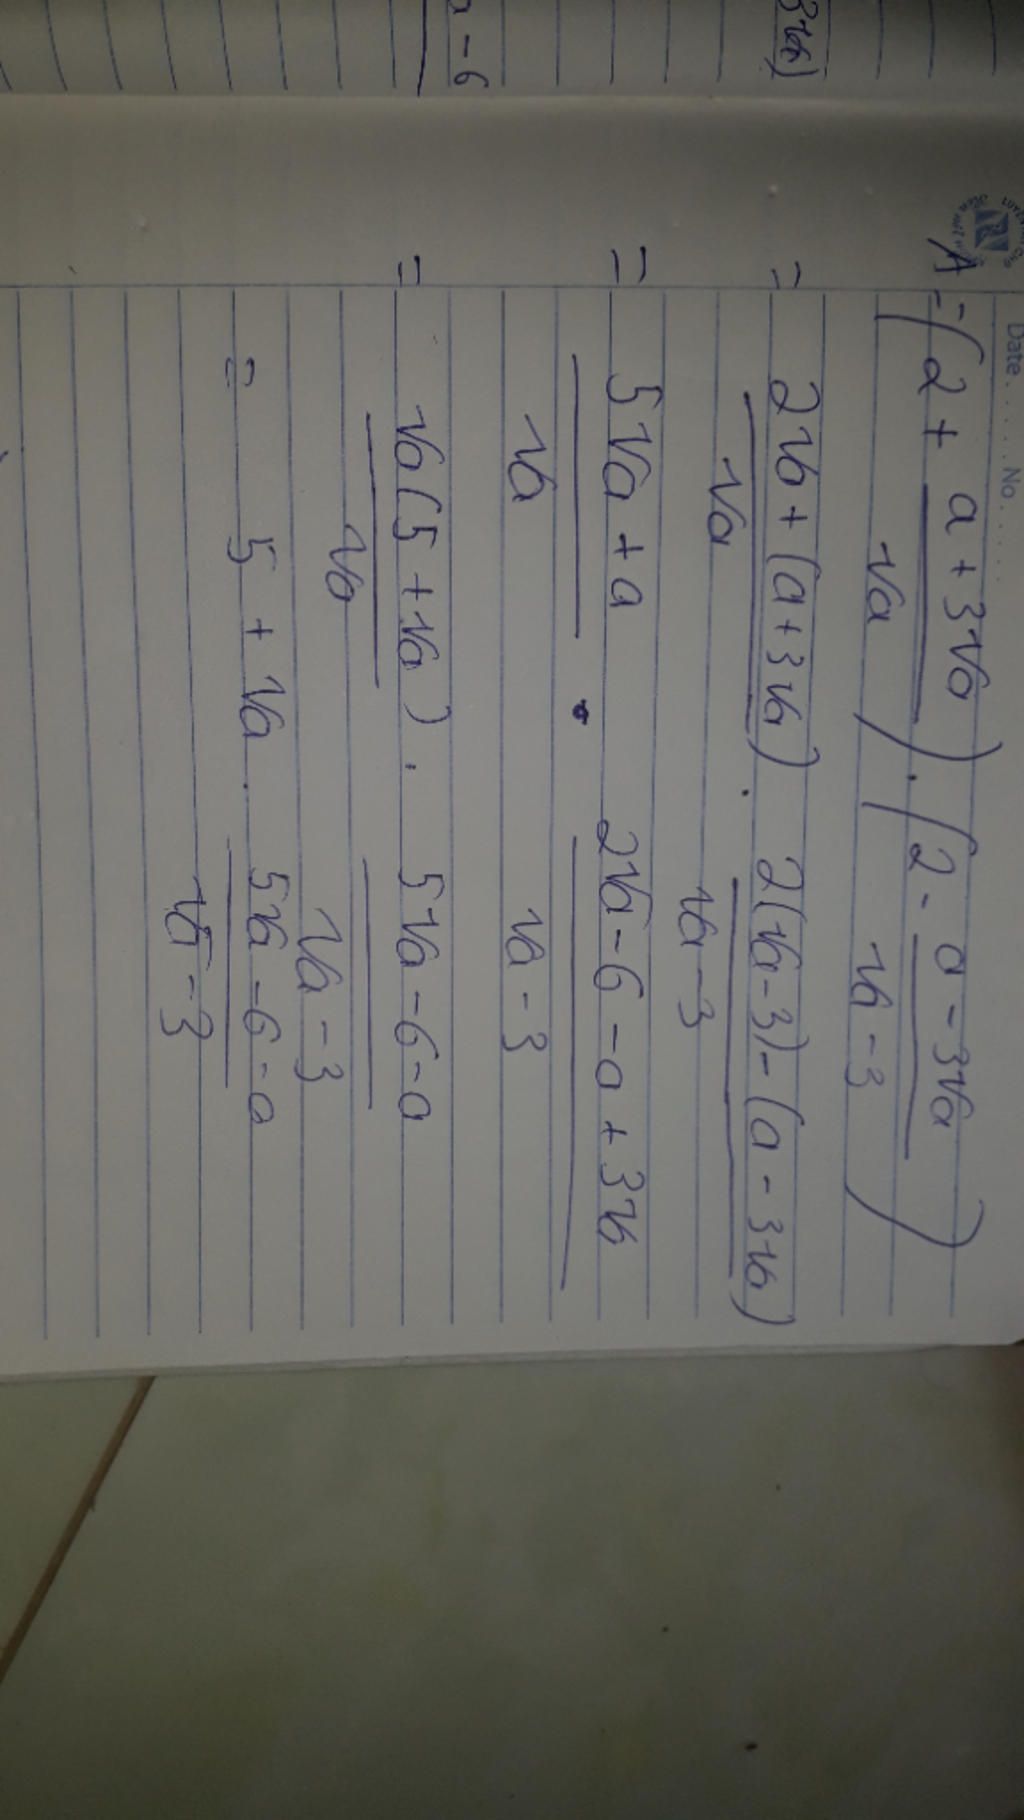 3√a)
a - 6
Date....... No.......
A = (2 + a + 3√a / √a) . (2 - a - 3√a / √a - 3)
= 2√a + (a + 3√a) / √a . 2(√a - 3) - (a - 3√a) / √a - 3
= 5√a + a / √a . 2√a - 6 - a + 3√a / √a - 3
= √a (5 + √a) / √a . 5√a - 6 - a / √a - 3
= 5 + √a . 5√a - 6 - a / √a - 3